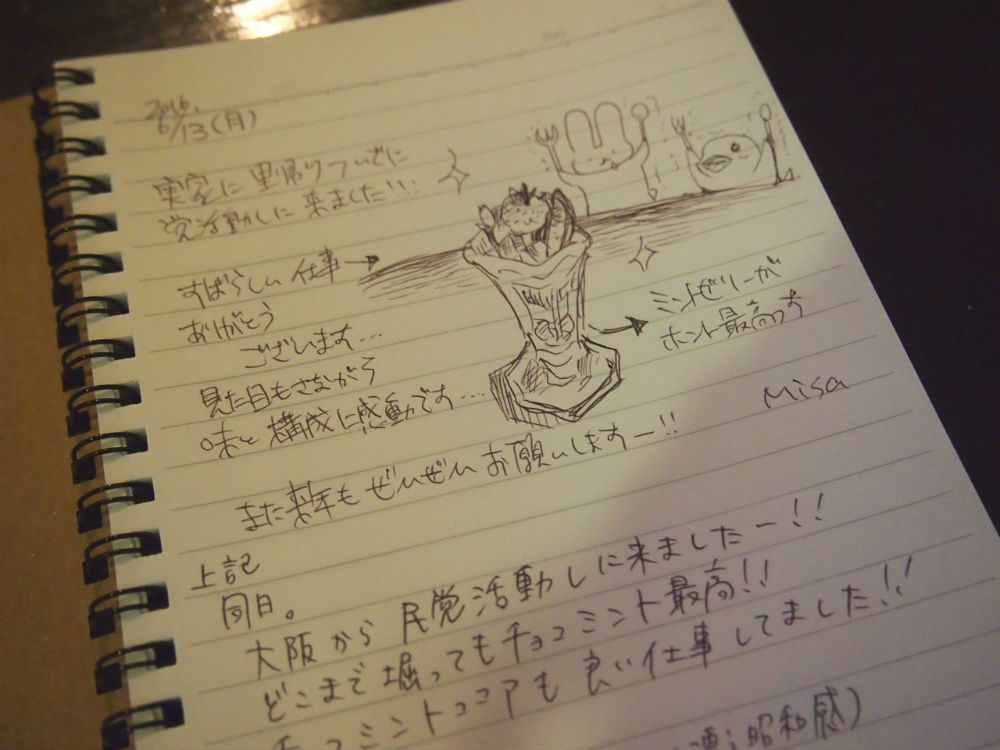 2016.
6/13(月)
実家に里帰りついでに
党活動しに来ました!!!
すばらしい仕事
ありがとう
ございます…
見た目もさながら
味と構成に感動です…
ミントゼリーが
ホント最高っす
Misa
また来年もぜひぜひお願いしますー!!
上記
同日。
大阪から民党活動しに来ましたー!!
どこまで堀ってもチョコミント最高!!
チョコミントココアも良い仕事してました!!
昭和感)